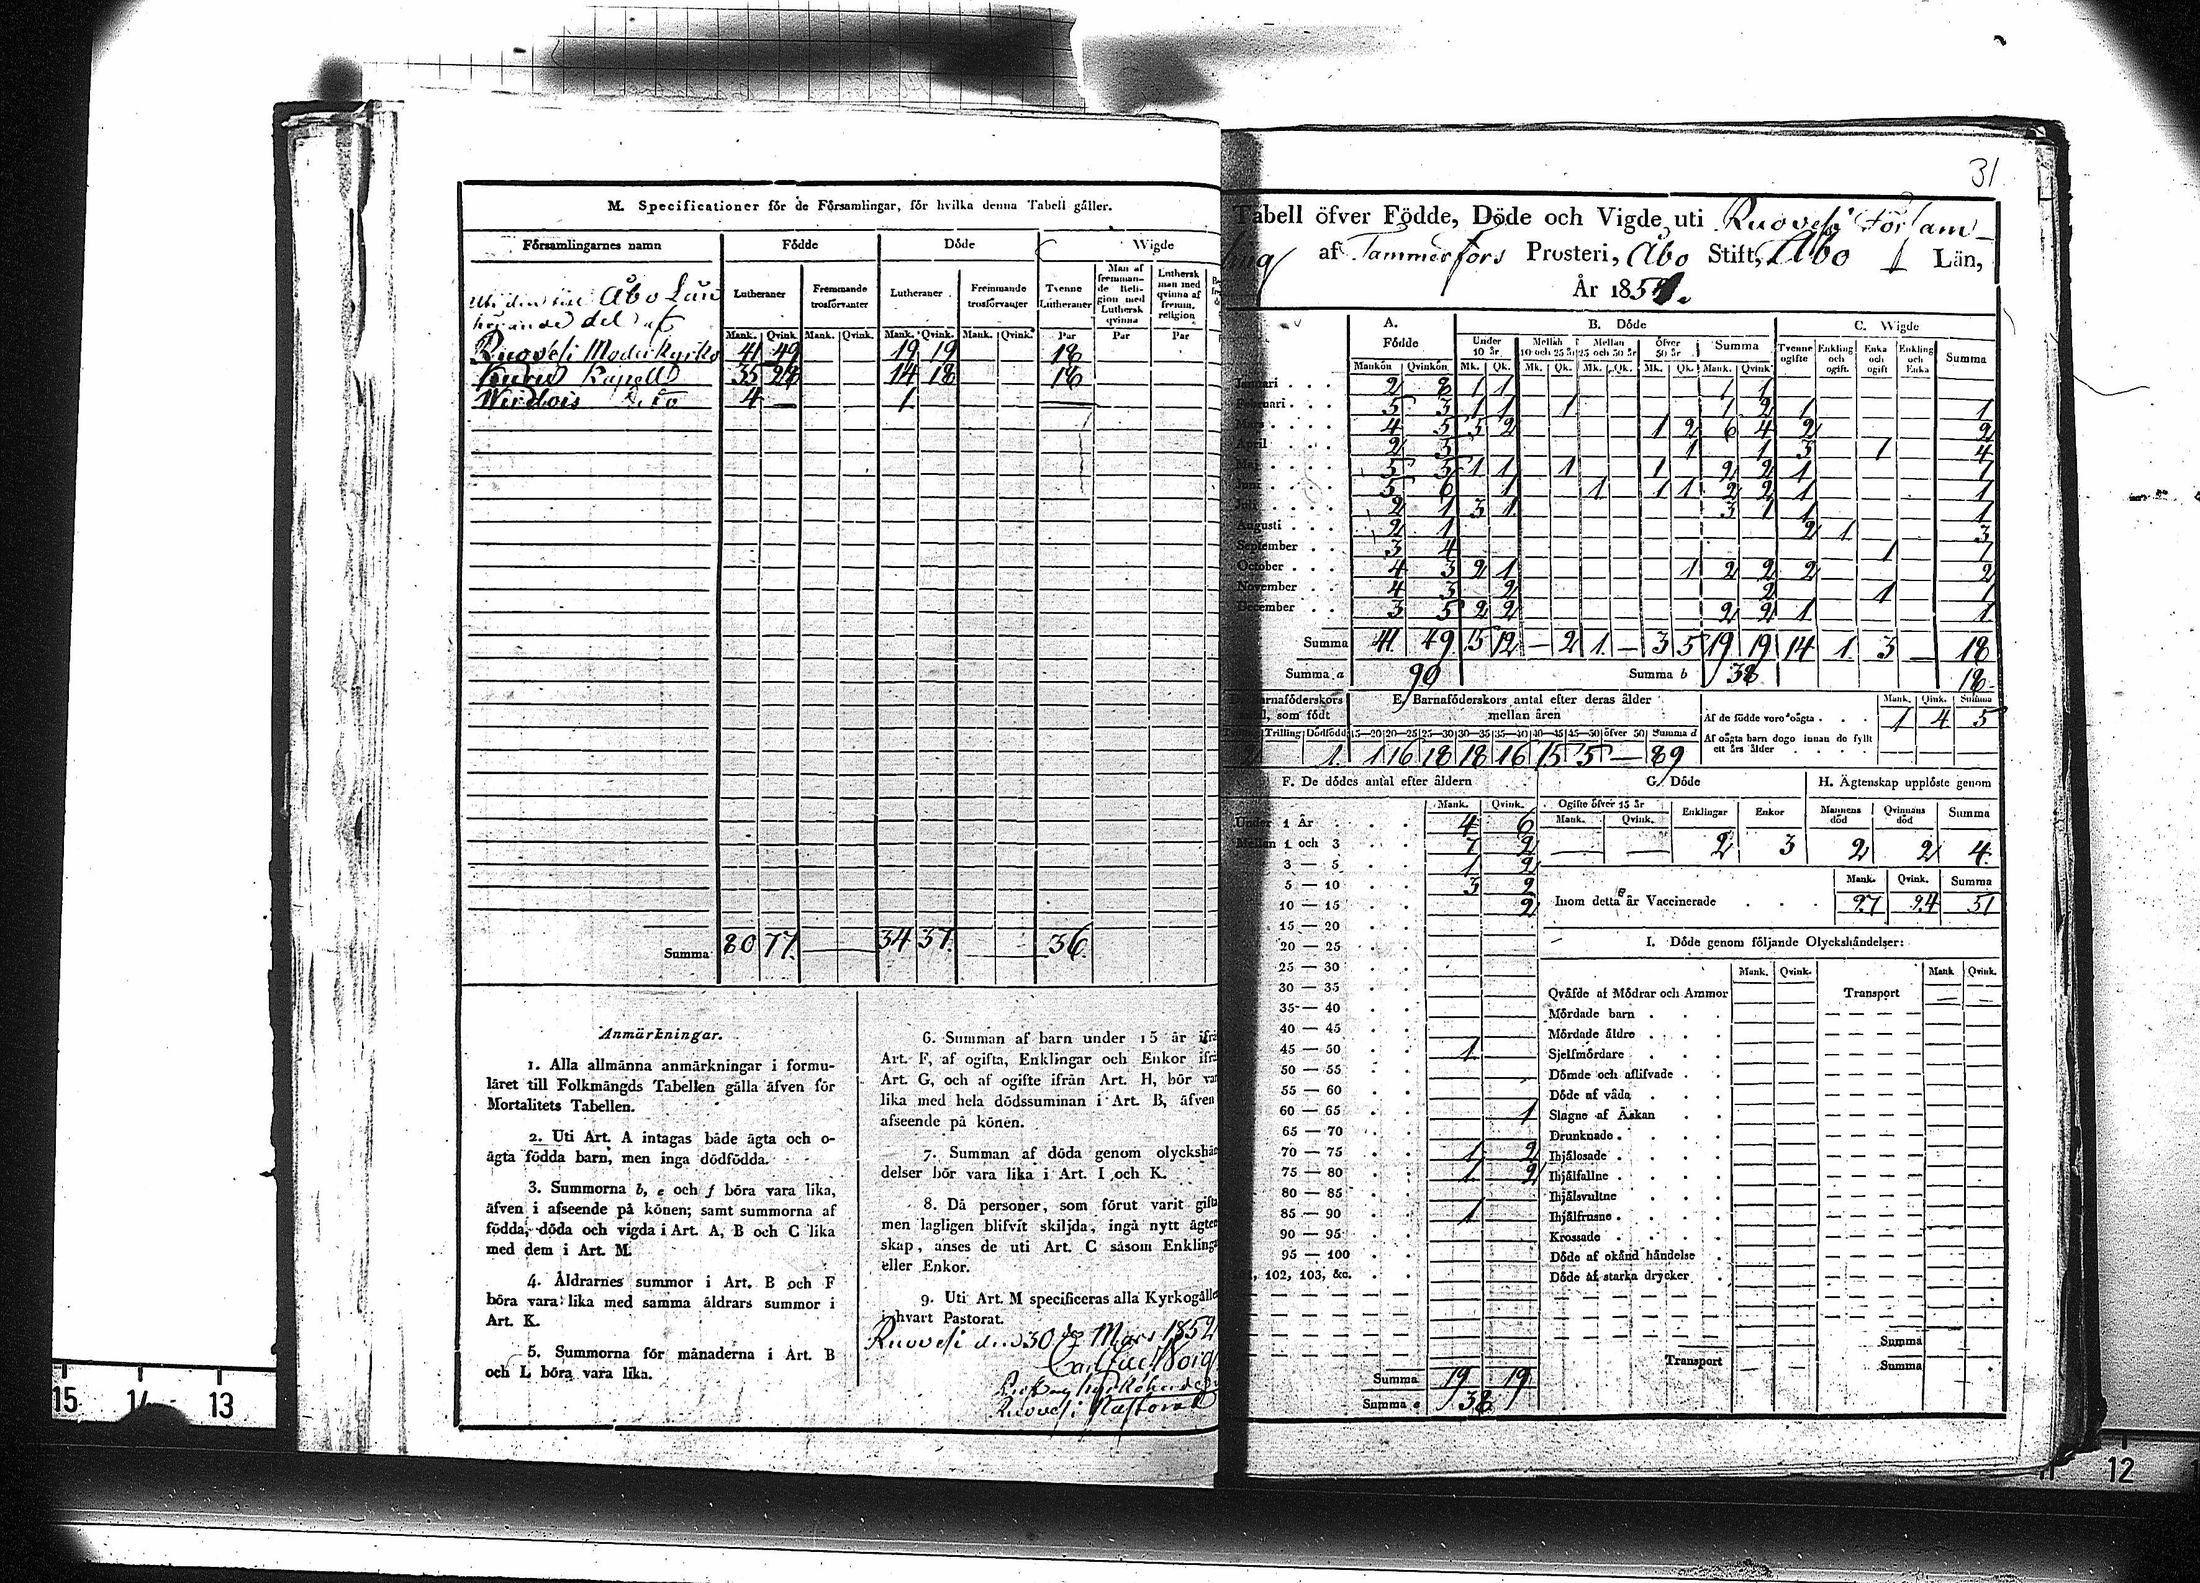 M. Specificationer för de Församlingar, för hvilka denna Tabell gäller.
Församlingarnes namn Födde Döde Wigde
Lutheraner Fremmande trosförvanter Lutheraner Fremmande trosförvanter Tvenne Lutheraner Man af fremmande Religion med Luthersk qvinna Luthersk man med qvinna af fremm. religion
Åbo Län
hörande del af
Mank. Qvink. Mank. Qvink. Mank. Qvink. Mank. Qvink. Par Par Par
Ruovesi Moderkyrko 41 49 19 19 18
Kuru Kapell 35 28 14 18 18
Wirdois d:to 4 — 1 —
Summa 80 77 — 34 37 — 36
Anmärkningar.
1. Alla allmänna anmärkningar i formu-
läret till Folkmängds Tabellen gälla äfven för
Mortalitets Tabellen.
2. Uti Art. A intagas både ägta och o-
ägta födda barn, men inga dödfödda.
3. Summorna b, e och f böra vara lika,
äfven i afseende på könen; samt summorna af
födda, döda och vigda i Art. A, B och C lika
med dem i Art. M.
4. Åldrarnes summor i Art. B och F
böra vara lika med samma åldrars summor i
Art. K.
5. Summorna för månaderna i Art. B
och L böra vara lika.
6. Summan af barn under 15 år ifrå
Art. F, af ogifta, Enklingar och Enkor ifrå
Art. G, och af ogifte ifrån Art. H, bör var
lika med hela dödssumman i Art. B, äfven
afseende på könen.
7. Summan af döda genom olyckshän
delser bör vara lika i Art. I och K.
8. Då personer, som förut varit gifta
men lagligen blifvit skiljda, ingå nytt ägten
skap, anses de uti Art. C såsom Enklinga
eller Enkor.
9. Uti Art. M specificeras alla Kyrkogälle
i hvart Pastorat.
Ruovesi den 30de Mars 1852
Ruovesi Pastorat
31
Tabell öfver Födde, Döde och Vigde uti Ruovesi Församling
af Tammerfors Prosteri, Åbo Stift, Åbo Län,
År 1851.
A. B. Döde C. Wigde
Födde Under 10 år Mellan 10 och 25 år Mellan 25 och 50 år Öfver 50 år Summa Tvenne ogifte Enkling och ogift. Enka och ogift Enkling och Enka Summa
Mankön Qvinkön Mk. Qk. Mk. Qk. Mk. Qk. Mk. Qk. Mank. Qvink.
Januari 2 8 1 1 1 1
Februari 5 3 1 1 1 1 2 1 1
Mars 4 5 5 2 1 2 6 4 2 2
April 2 3 1 1 3 1 4
Maj 5 5 1 1 1 1 2 2 1 1
Juni 5 6 1 1 1 1 2 2 1 1
Juli 2 1 3 1 3 1 1 1
Augusti 2 1 2 1 3
September 3 4 1 1
October 4 3 2 1 1 2 2 2 2
November 4 3 2 2 1 1
December 3 5 2 2 2 2 1 1
Summa 41 49 15 12 — 2 1 — 3 5 19 19 14 1 3 — 18
Summa a 90 Summa b 38 18
Barnaföderskors
som födt
Trilling Dödfödd
1 1
E. Barnaföderskors antal efter deras ålder
mellan åren
15—20 20—25 25—30 30—35 35—40 40—45 45—50 öfver 50 Summa d
1 16 18 18 16 15 5 — 89
Mank. Qink. Summa
Af de födde voro oägta 1 4 5
Af oägta barn dogo innan de fyllt
ett års ålder
F. De dödes antal efter åldern
Mank. Qvink.
Under 1 År 4 6
Mellan 1 och 3 7 2
3 — 5 1 2
5 — 10 3 2
10 — 15 2
15 — 20
20 — 25
25 — 30
30 — 35
35 — 40
40 — 45
45 — 50 1
50 — 55
55 — 60
60 — 65 1
65 — 70
70 — 75 1 2
75 — 80 1 2
80 — 85
85 — 90 1
90 — 95
95 — 100
102, 103, &c.
Summa 19 19
Summa e 38
G. Döde
Ogifte öfver 15 år Enklingar Enkor
Mank. Qvink.
— — 2 3
H. Ägtenskap upplöste genom
Mannens död Qvinnans död Summa
2 2 4
Mank. Qvink. Summa
Inom detta år Vaccinerade 27 24 51
I. Döde genom följande Olyckshändelser:
Mank. Qvink. Mank Qvink.
Qväfde af Mödrar och Ammor Transport
Mördade barn
Mördade äldre
Sjelfmördare
Dömde och aflifvade
Döde af våda
Slagne af Åskan
Drunknade
Ihjälosade
Ihjälfallne
Ihjälsvultne
Ihjälfrusne
Krossade
Döde af okänd händelse
Döde af starka drycker
Summa
Transport Summa
15 14 13
12